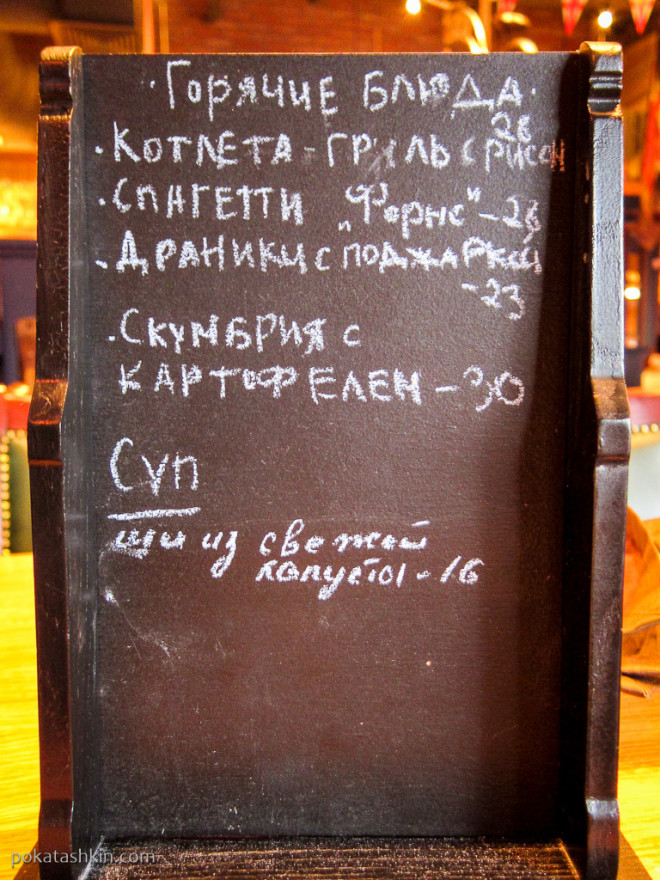 ·Горячие блюда·
26
·Котлета-гриль с рисом
·Спагетти "Форнс"-26
·Драники с поджаркой
-23
·Скумбрия с
картофелем-30
Суп
щи из свежей
капусты-16
pokatashkin.com